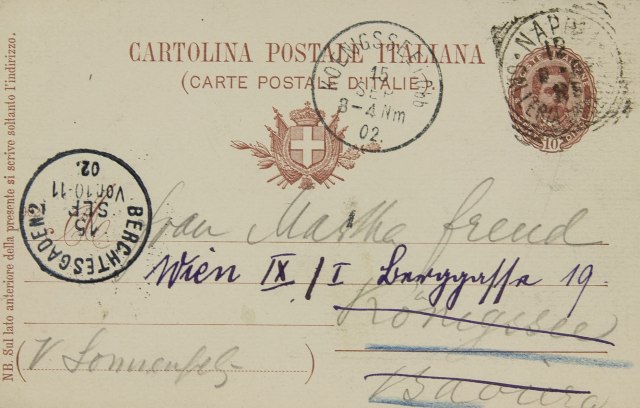 CARTOLINA POSTALE ITALIANA
(CARTE POSTALE D'ITALIE)
KOENIGSSEE
15
SEP
3-4 Nm
02.
NAP
12
10
BERCHTESGADEN 2
15
SEP
Vor 10-11
02.
Frau Martha Freud
Wien IX/I Berggasse 19
Königssee
Baviera
V Sonnenfels
NB. Sul lato anteriore della presente si scrive soltanto l'indirizzo.